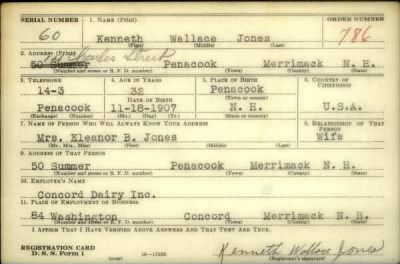 SERIAL NUMBER 1. NAME (Print) ORDER NUMBER
60 Kenneth Wallace Jones 786
(First) (Middle) (Last)
2. ADDRESS (Print)
Charles Street
50 Summer Penacook Merrimack N. H.
(Number and street or R. F. D. number) (Town) (County) (State)
3. TELEPHONE 4. AGE IN YEARS 5. PLACE OF BIRTH 6. COUNTRY OF CITIZENSHIP
14-3 32 Penacook
DATE OF BIRTH (Town or county)
Penacook 11-18-1907 N. H. U.S.A.
(Exchange) (Number) (Mo.) (Day) (Yr.) (State or country)
7. NAME OF PERSON WHO WILL ALWAYS KNOW YOUR ADDRESS 8. RELATIONSHIP OF THAT PERSON
Mrs. Eleanor B. Jones Wife
(Mr., Mrs., Miss) (First) (Middle) (Last)
9. ADDRESS OF THAT PERSON
50 Summer Penacook Merrimack N. H.
(Number and street or R. F. D. number) (Town) (County) (State)
10. EMPLOYER'S NAME
Concord Dairy Inc.
11. PLACE OF EMPLOYMENT OR BUSINESS
84 Washington Concord Merrimack N. H.
(Number and street or R. F. D. number) (Town) (County) (State)
I AFFIRM THAT I HAVE VERIFIED ABOVE ANSWERS AND THAT THEY ARE TRUE.
REGISTRATION CARD
D. S. S. Form 1 (over) Kenneth Wallace Jones
(Registrant's signature)